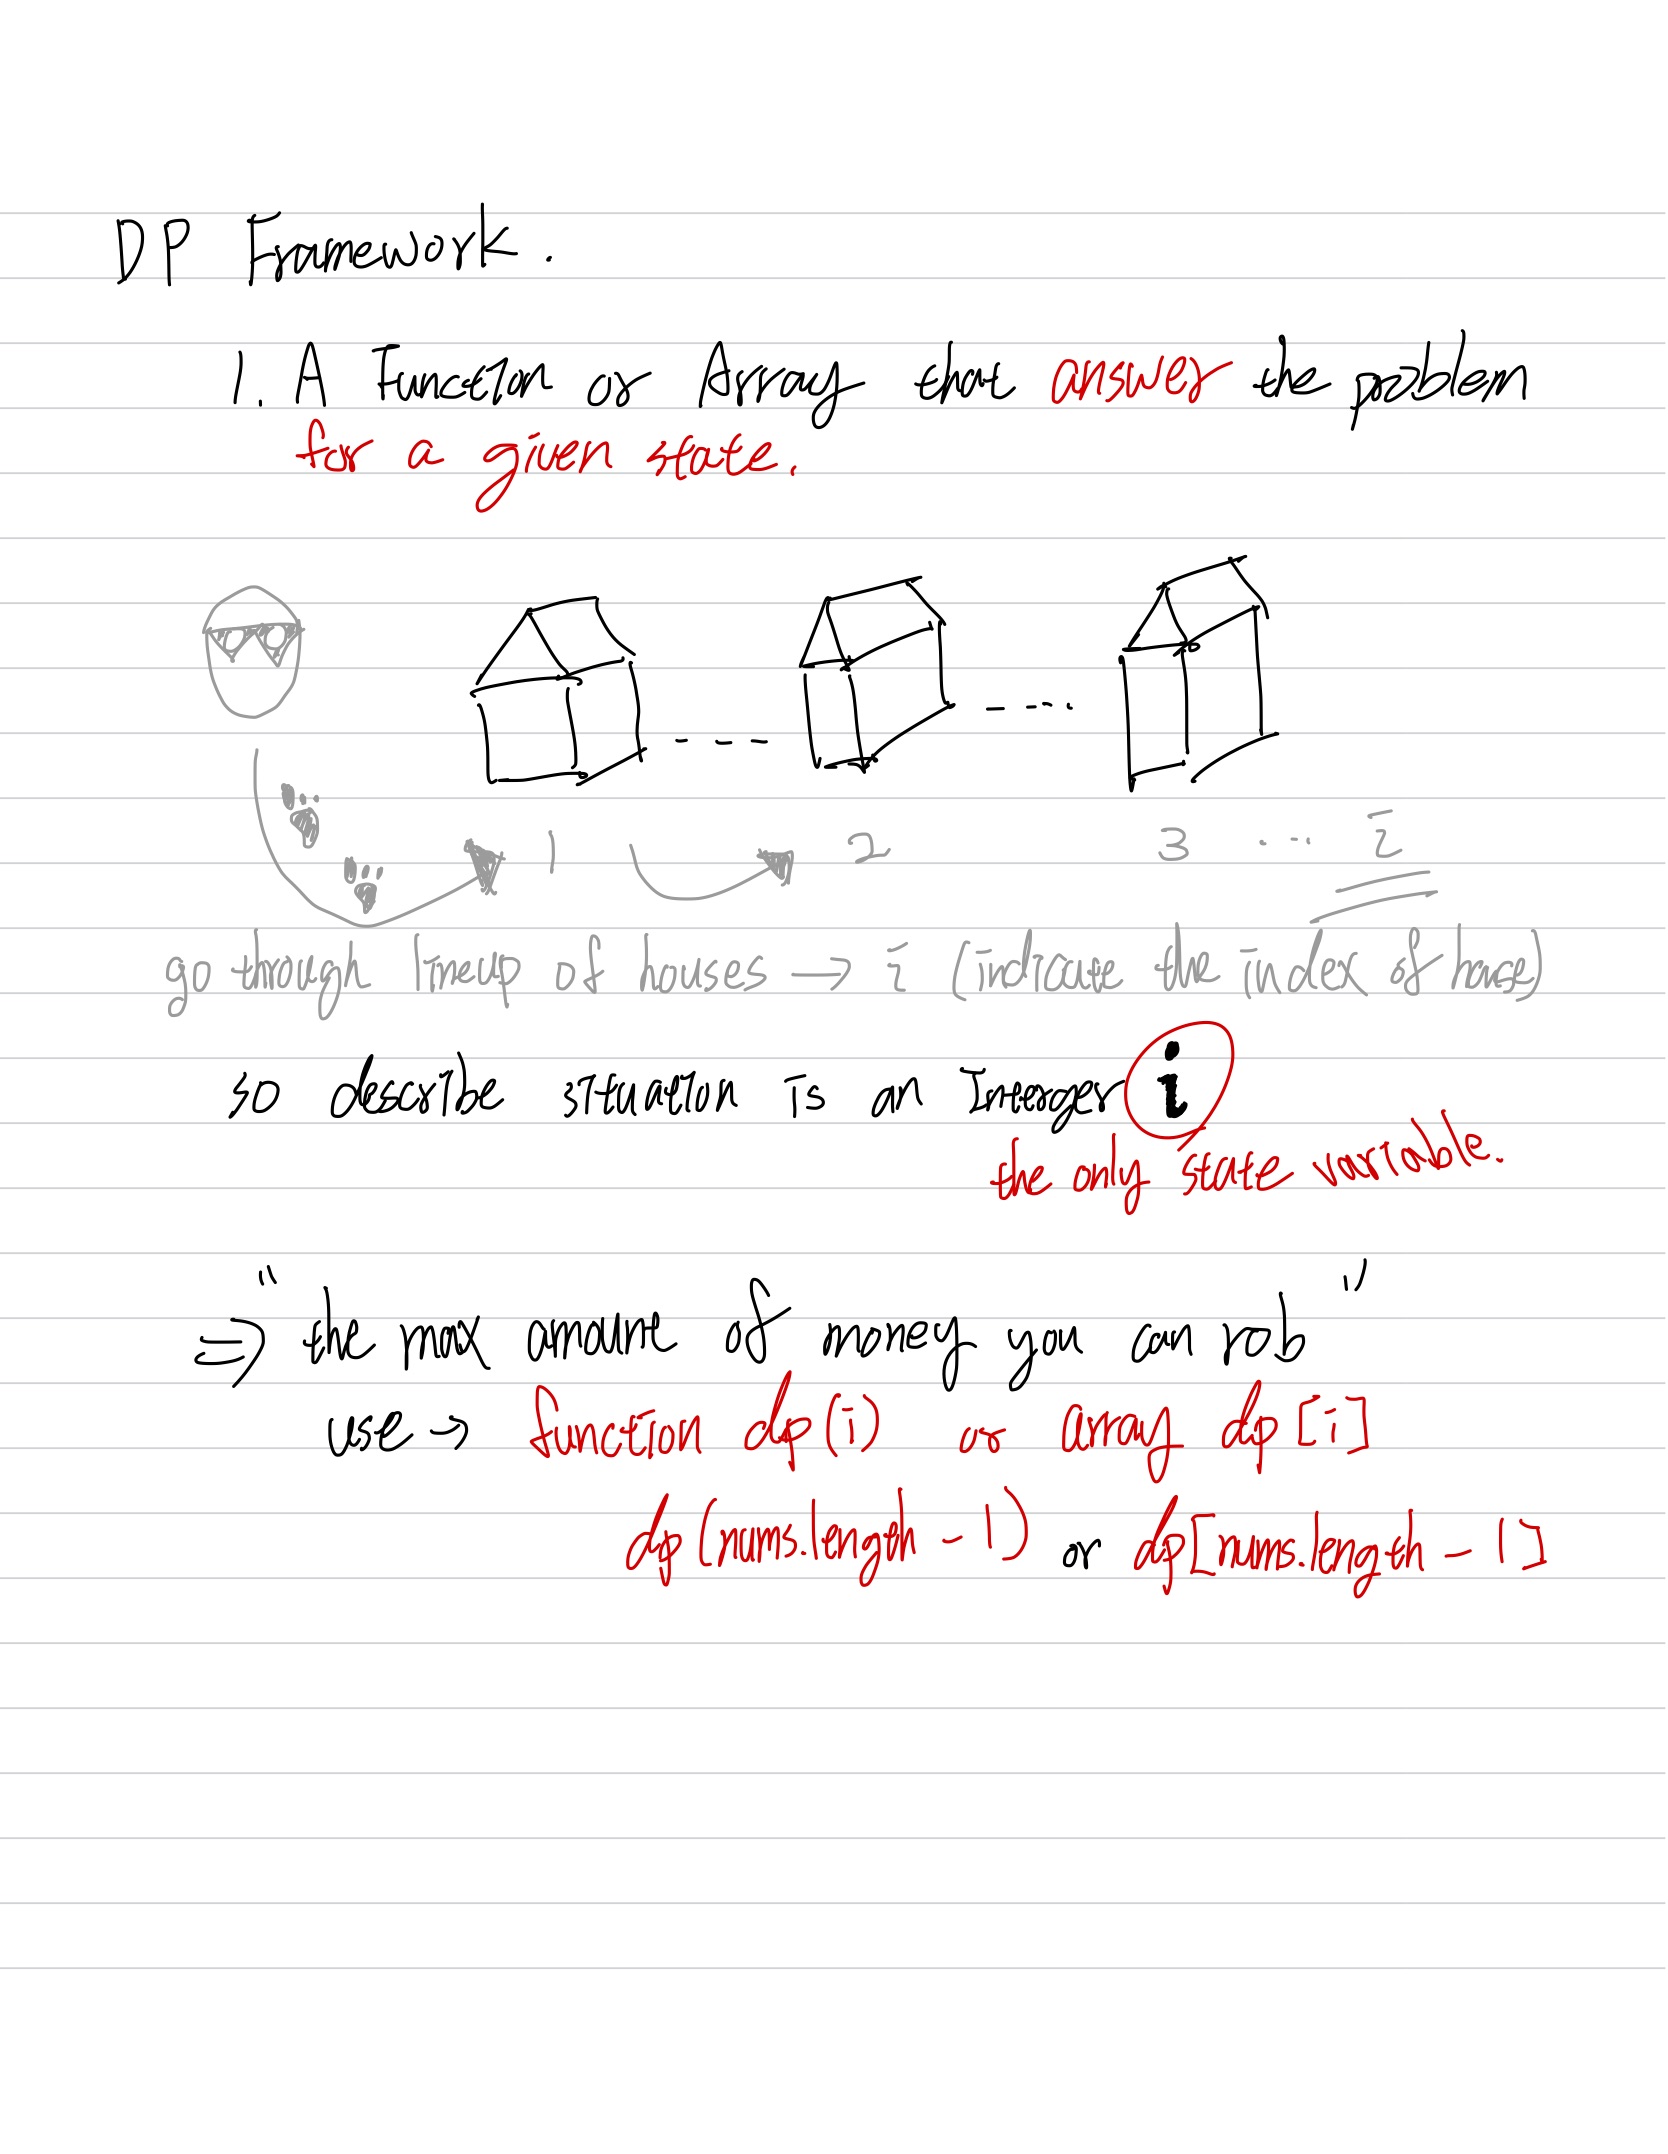 DP Framework.
1. A Function or Array that answer the problem
for a given state.
1 2 3 ... i
go through lineup of houses → i (indicate the index of house)
so describe situation is an Interger i
the only state variable.
⇒ "the max amount of money you can rob"
use → function dp(i) or array dp[i]
dp(nums.length - 1) or dp[nums.length - 1]